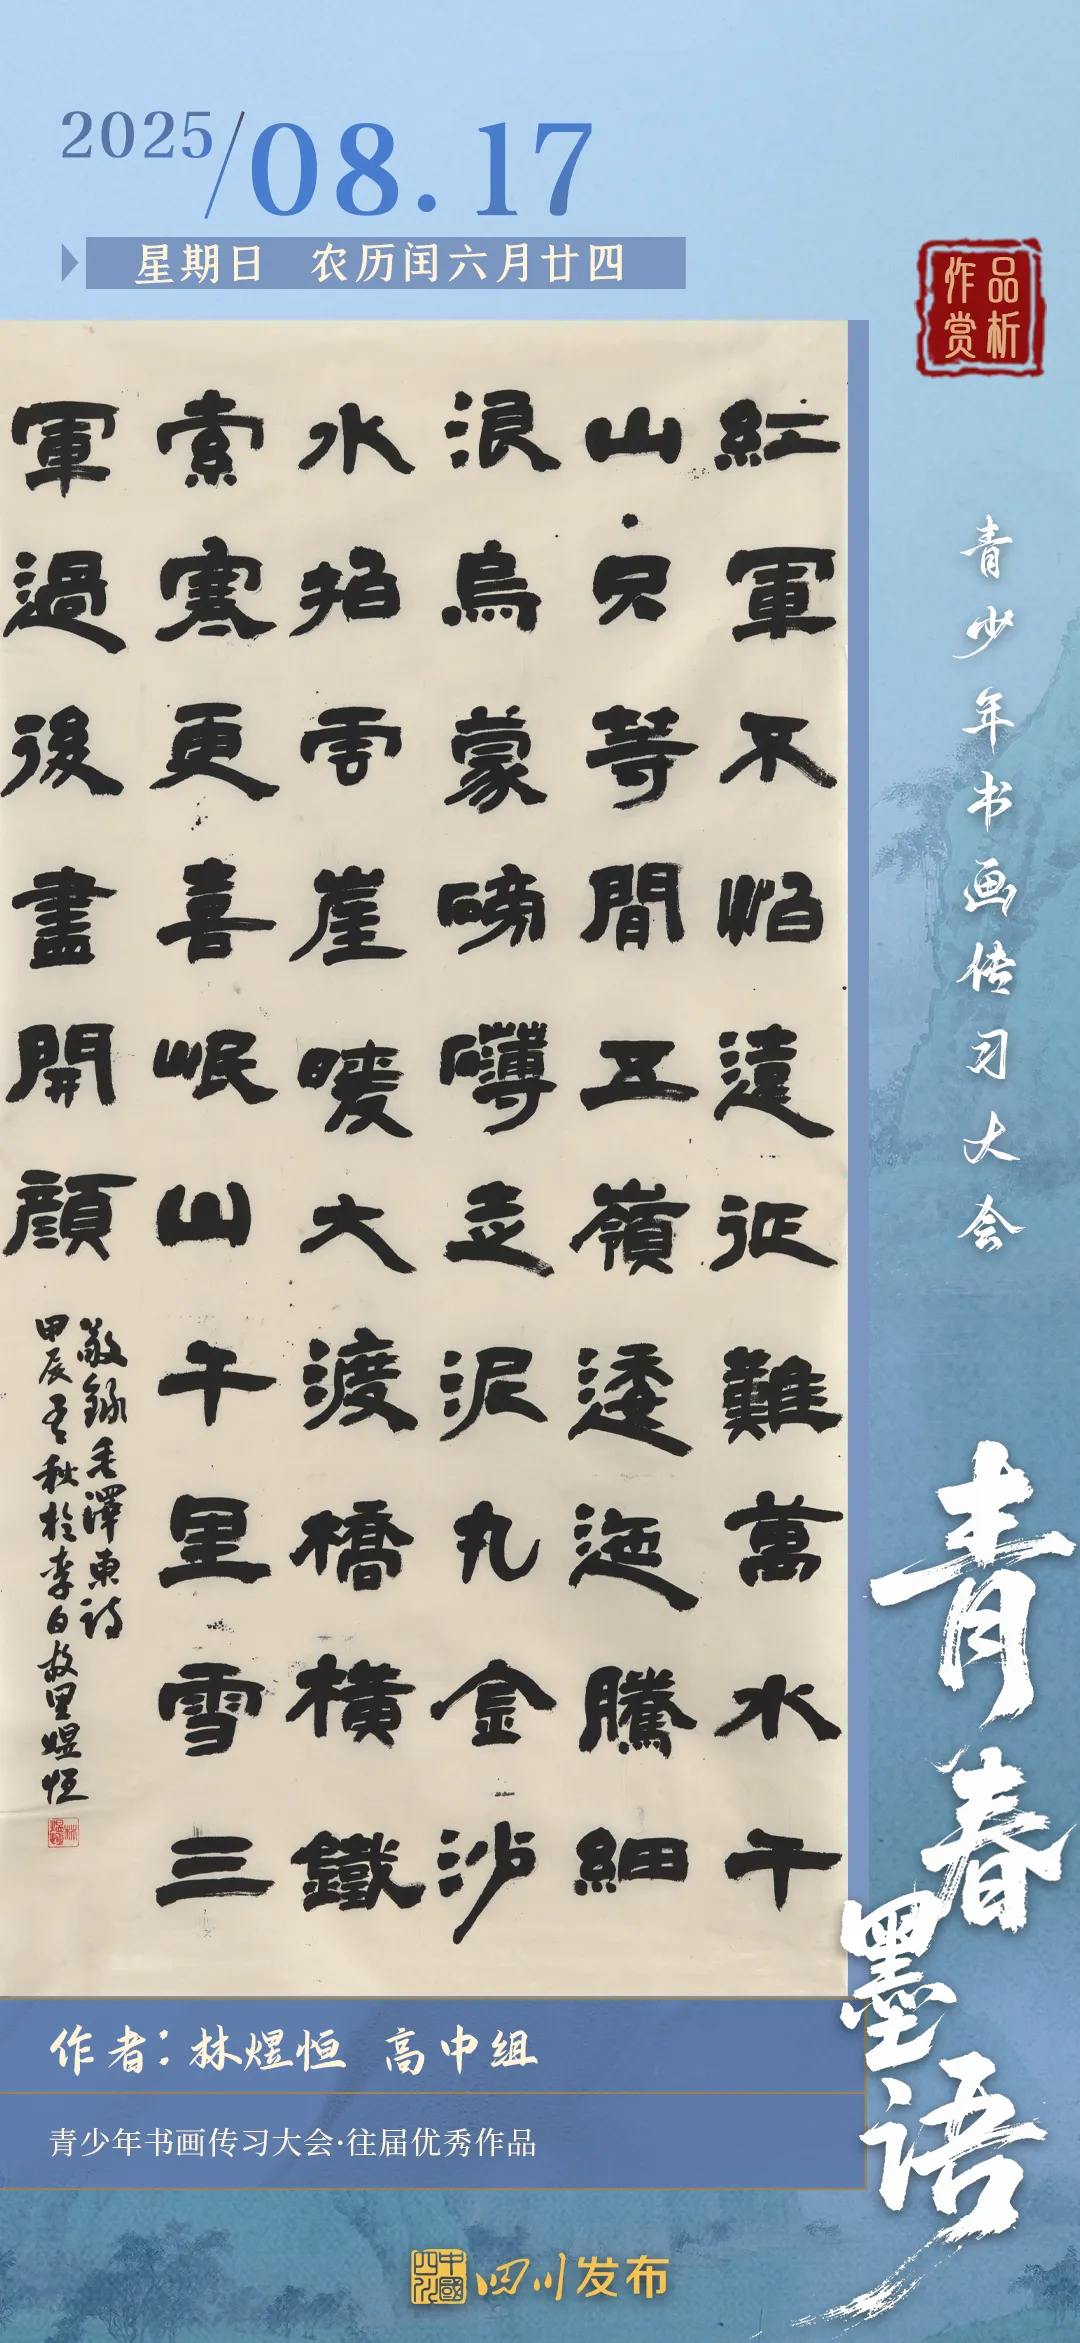 2025/08.17
星期日 农历闰六月廿四
作品
赏析
青少年书画传习大会
紅軍不怕遠征難萬水千
山只等間五嶺逶迤騰細
浪烏蒙磅礴走泥丸金沙
水拍雲崖暖大渡橋橫鐵
索寒更喜岷山千里雪三
軍過後盡開顏
敬錄毛澤東詩
甲辰秋於李白故里煜恒
青春墨语
作者：林煜恒 高中组
青少年书画传习大会·往届优秀作品
中國四川
四川发布